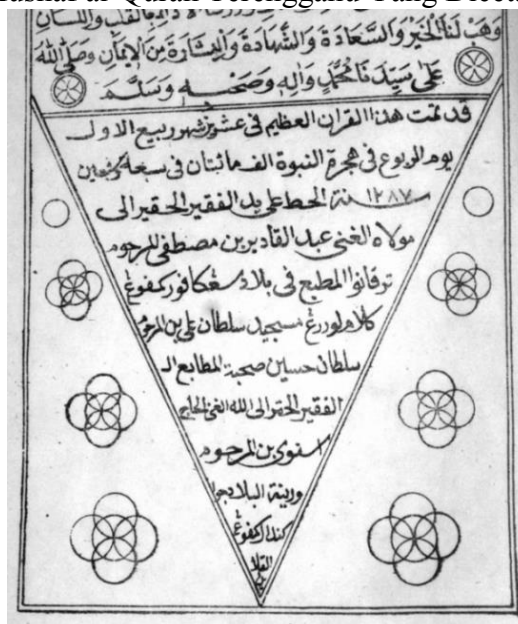 وهب لنا الخير والسعادة والشهادة والبشارة من الإيمان وصلى الله
على سيدنا محمد واله وصحبه وسلم
قد تمت هذا القران العظيم فى عشور شهور ربيع الاول
يوم الربوع فى هجرة النبوة الف مائتان فى سبعة
١٢٨٧ سنة الخط على يد الفقير الحقير الى
مولاه الغنى عبد القادير بن مصطفى المرحوم
ترقانوا المطبع فى بلاد سڠكافور كمفوڠ
كلام لورڠ مسجيد سلطان على بن المرحوم
سلطان حسين صحبة المطابع الـ
الفقير الحقر الى الله الغنى الحاج
بن المرحوم
البلاد جوا
كمفوڠ